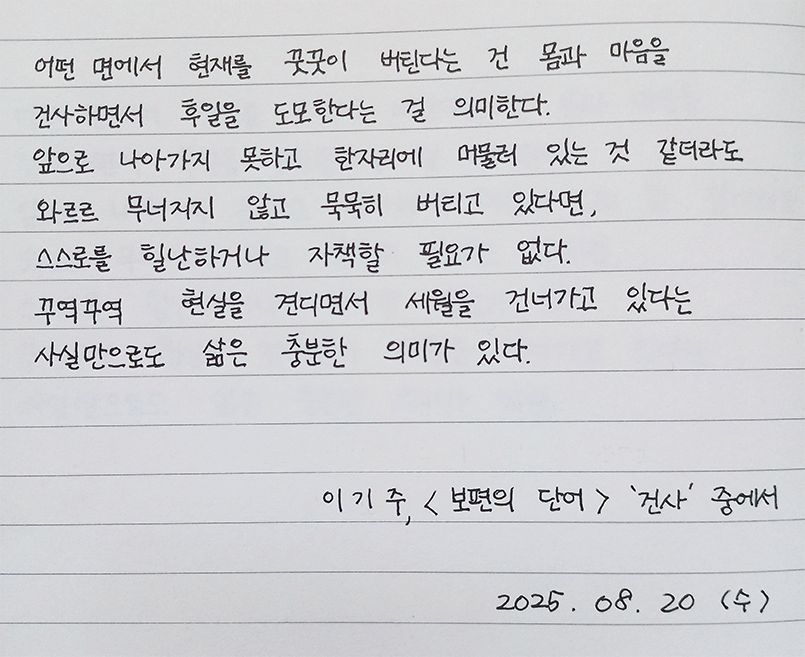 어떤 면에서 현재를 꿋꿋이 버틴다는 건 몸과 마음을
건사하면서 후일을 도모한다는 걸 의미한다.
앞으로 나아가지 못하고 한자리에 머물러 있는 것 같더라도
와르르 무너지지 않고 묵묵히 버티고 있다면,
스스로를 힐난하거나 자책할 필요가 없다.
꾸역꾸역 현실을 견디면서 세월을 건너가고 있다는
사실만으로도 삶은 충분한 의미가 있다.
이기주, <보편의 단어> '건사' 중에서
2025. 08. 20 (수)